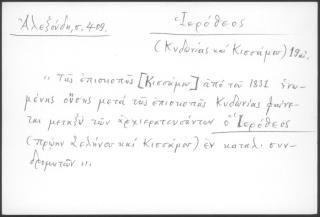 Ἀλεξούδη, σ. 409.
Ἱερόθεος
(Κυδωνίας καί Κισσάμου) 19 αἰ.
"Τῆς ἐπισκοπῆς [Κισσάμου] ἀπό τοῦ 1831 ἡνω-
μένης οὔσης μετά τῆς ἐπισκοπῆς Κυδωνίας φαίνε-
ται μεταξύ τῶν ἀρχιερατευσάντων ὁ Ἱερόθεος
(πρώην Σελήνου καί Κισσάμου) ἐν καταλ. συν-
δρομητῶν ...